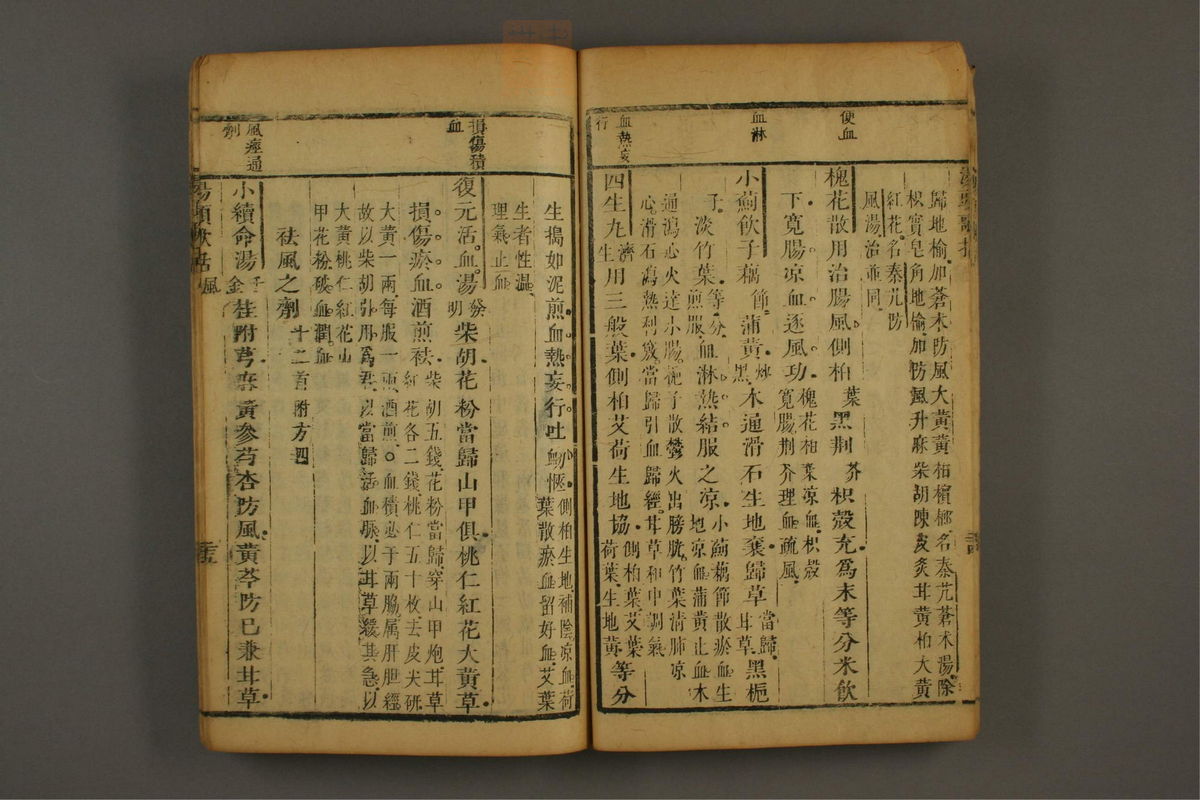 湯頭歌括
二十四
便血
歸地榆加蒼朮防風大黃黃柏檳榔名秦艽蒼朮湯除
枳實皂角地榆加防風升麻柴胡陳皮炙甘黃柏大黃
紅花名秦艽防
風湯治並同
槐花散用治腸風側柏葉黑荊芥枳殼充爲末等分米飲
下寬腸凉血逐風功槐花柏葉凉血枳殼
寬腸荆芥理血疏風
血淋
小薊飲子藕節蒲黃炒黑木通滑石生地襄歸草當歸甘草黑梔
子淡竹葉等分煎服血淋熱結服之凉小薊藕節散瘀血生
地凉血蒲黃止血木
通瀉心火達小腸梔子散鬱火出膀胱竹葉清肺凉
心滑石瀉熱利竅當歸引血歸經甘草和中調氣
血熱妄行
四生丸濟生用三般葉側柏艾荷生地協側柏葉艾葉
荷葉生地黃等分
生搗如泥煎血熱妄行吐衄愜側柏生地補陰凉血荷
葉散瘀血留好血艾葉
生者性溫
理氣止血
損傷積血
復元活血湯發明柴胡花粉當歸山甲俱桃仁紅花大黃草
損傷瘀血酒煎祛柴胡五錢花粉當歸穿山甲炮甘草
紅花各二錢桃仁五十枚去皮尖研
大黃一兩每服一兩酒煎○血積必于兩脇属肝胆經
故以柴胡引用爲君以當歸活血脈以甘草緩其急以
大黃桃仁紅花山
甲花粉破血潤血
祛風之劑十二首附方四
風痙通劑
小續命湯千金桂附芎麻黃參芍杏防風黃芩防己兼甘草
湯頭歌括
風
二十五